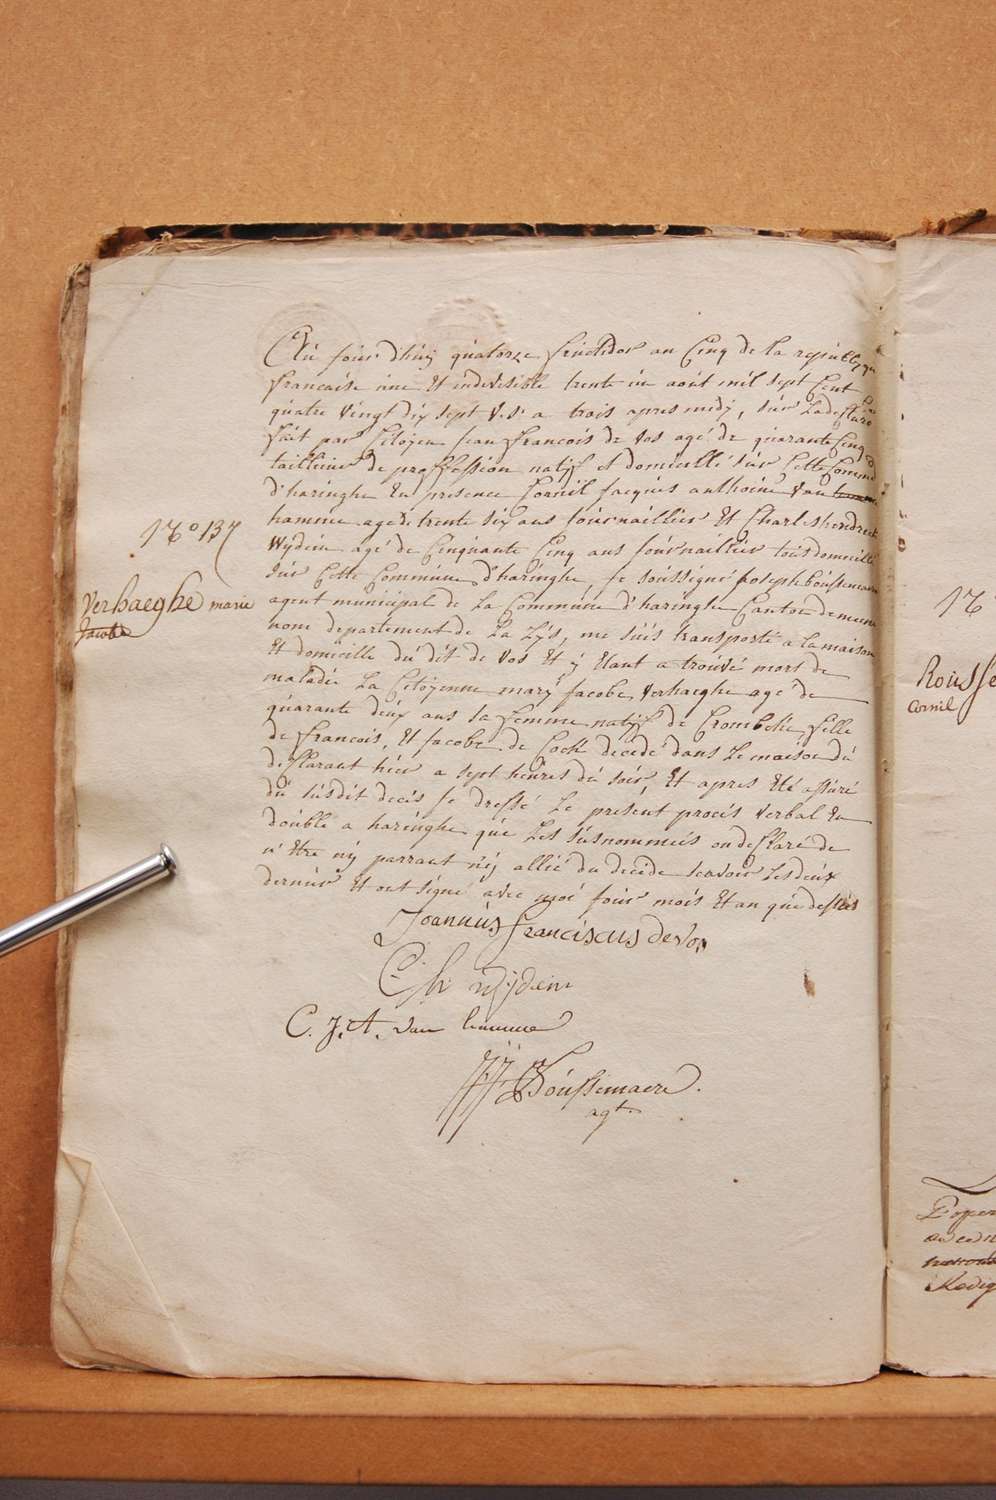 Cu jour d'huij quatorze fructidor an Cinq de la republique
francaise une Et indivisible trente un aoūt mil sept Cent
quatre vingt dix sept v.s. a trois apres midij, sur La declaration
fait par Citoyen jean francois de vos agé de quarante Cinq
tailleur de proffession natif et domicillé sur Cette Commune
d'haringhe En presence Corneil jacques anthoine Van
hamme agé de trente six ans journaillier Et Charles hendrick
Wijdein agé de Cinquante Cinq ans journaillier tous domicillé
sur Cette Commune d'haringhe, je soussigné joseph boussemaere
agent municipal de La Commune d'haringhe Canton de meme
nom departement de La Lijs, me suis transporté a la maison
Et domicille du dit de vos Et ÿ Etant a trouvé mort de
maladie La Citoyenne marÿ jacobe Verhaeghe agé de
quarante deux ans sa femme natif de Crombeke fille
de francois, Et jacobe de Cock decedé dans Le maison du
desclarant hier a sept heures du soir, Et apres Eté assuré
du susdit deces je dressé Le present procés verbal En
double a haringhe que Les susnommés on desclaré de
n'Etre nij parrant nij allié du decede scavoir Les deux
dernier Et ont signé avec moi jour mois Et an que dessus
Joannus franciscus devos
Ch wijdein
C. J. A. van hamme
JJ Boussemaere.
agt.
No 137
Verhaeghe marie
Jacobe
No
Rousse
Cornil